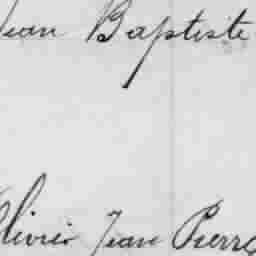 Jean Baptiste
Olivier Jean Pierre